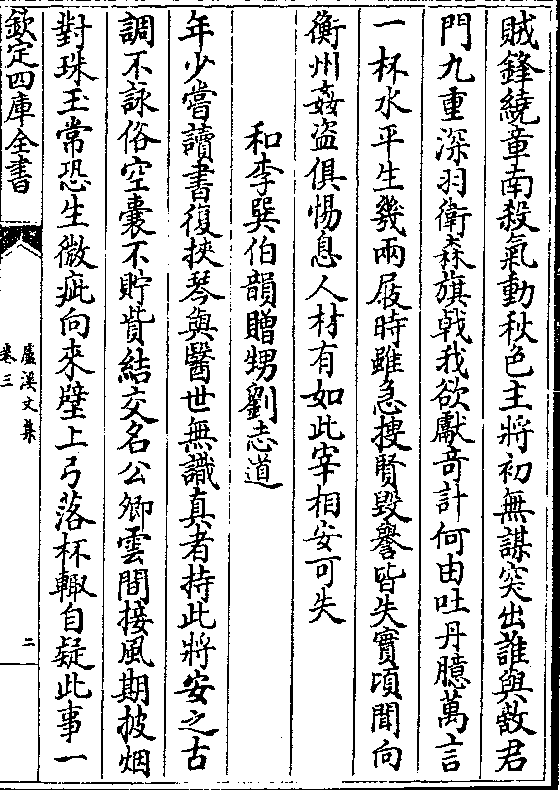 賊鋒繞章南殺氣動秋色主將初無謀突出誰與敵君
門九重深羽衛森旗㦸我欲獻竒計何由吐丹臆萬言
一杯水平生幾兩屐時雖急搜賢毀譽皆失實頃聞向
衡州姦盗俱惕息人材有如此宰相安可失
和李巽伯韻贈甥劉志道
年少嘗讀書復挾琴與醫世無識真者持此將安之古
調不詠俗空囊不貯貲結交名公卿雲間接風期披烟
對珠玉常恐生微疵向來壁上弓落杯輙自疑此事一
欽定四庫全書
盧溪文集
卷三
二